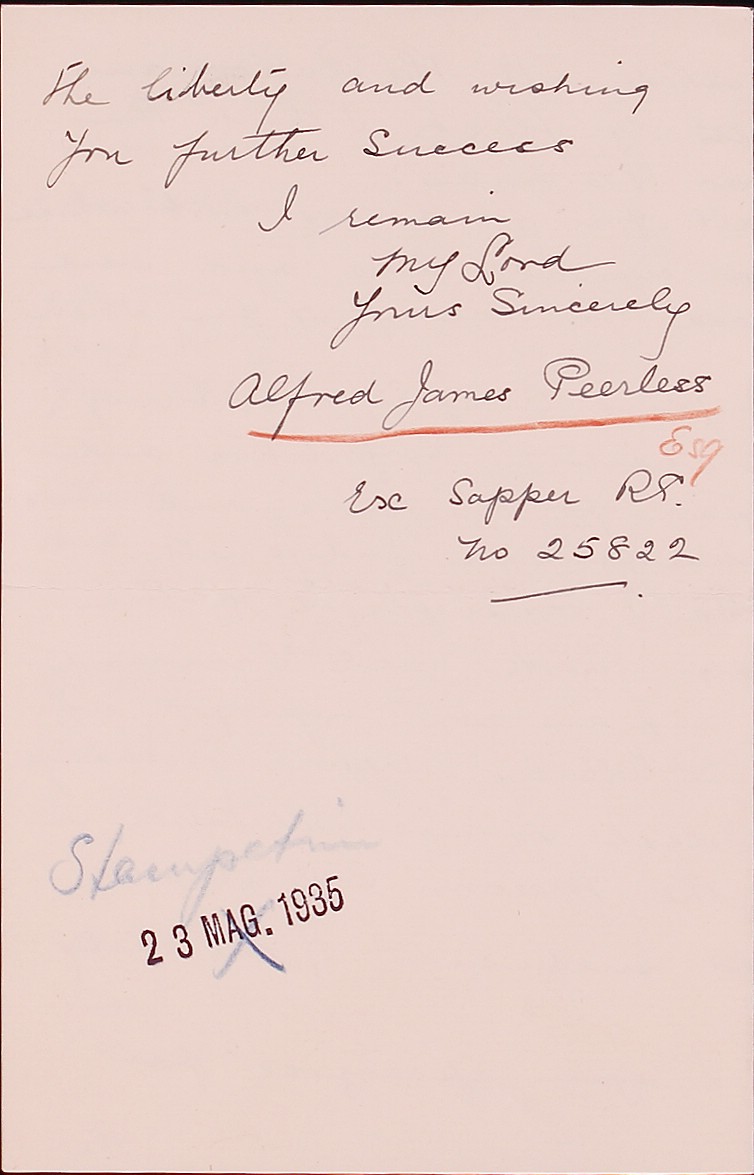 the liberty and wishing
You further Success
I remain
My Lord
Yours Sincerely
Alfred James Peerless
Esq
Esc Sapper R.E.
No 25822
23 MAG. 1935